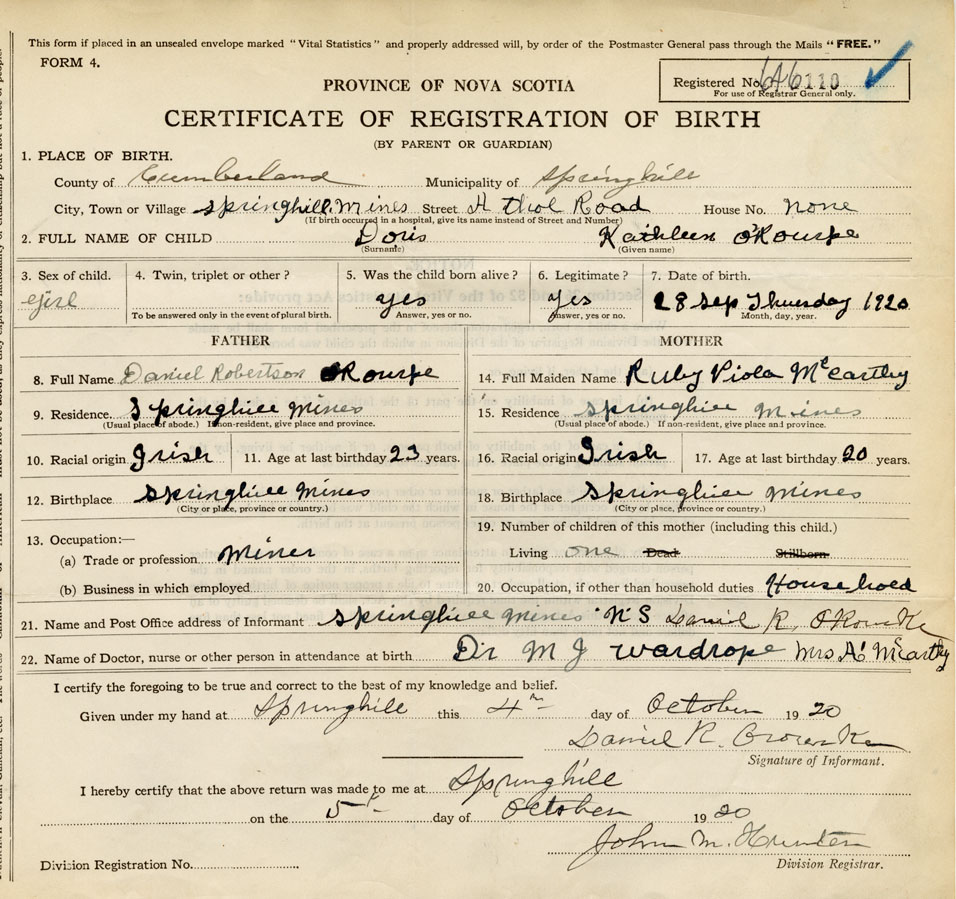 This form if placed in an unsealed envelope marked "Vital Statistics" and properly addressed will, by order of the Postmaster General pass through the Mails "FREE."
FORM 4.
Registered No. 6110
For use of Registrar General only.
PROVINCE OF NOVA SCOTIA
CERTIFICATE OF REGISTRATION OF BIRTH
(BY PARENT OR GUARDIAN)
1. PLACE OF BIRTH.
County of Cumberland Municipality of Springhill
City, Town or Village Springhill Mines Street Athol Road House No. none
(If birth occurred in a hospital, give its name instead of Street and Number)
2. FULL NAME OF CHILD Doris Kathleen O'Rourke
(Surname) (Given name)
3. Sex of child. 4. Twin, triplet or other? 5. Was the child born alive? 6. Legitimate? 7. Date of birth.
girl yes yes 28 Sep Thuesday 1920
To be answered only in the event of plural birth. Answer, yes or no. Answer, yes or no. Month, day, year.
FATHER MOTHER
8. Full Name Daniel Robertson O'Rourke 14. Full Maiden Name Ruby Viola McCarthy
9. Residence. Springhill Mines 15. Residence Springhill Mines
(Usual place of abode.) If non-resident, give place and province. (Usual place of abode.) If non-resident, give place and province.
10. Racial origin Irish 11. Age at last birthday 23 years. 16. Racial origin Irish 17. Age at last birthday 20 years.
12. Birthplace Springhill Mines 18. Birthplace Springhill Mines
(City or place, province or country.) (City or place, province or country.)
13. Occupation:— 19. Number of children of this mother (including this child.)
(a) Trade or profession Miner Living one Dead Stillborn
(b) Business in which employed 20. Occupation, if other than household duties Household
21. Name and Post Office address of Informant Springhill Mines N S Daniel R. O'Rourke
22. Name of Doctor, nurse or other person in attendance at birth Dr M J Wardrope Mrs A McCarthy
I certify the foregoing to be true and correct to the best of my knowledge and belief.
Given under my hand at Springhill this 4th day of October 1920
Daniel R. Orourke
Signature of Informant.
I hereby certify that the above return was made to me at Springhill
on the 5th day of October 1920
John M. Hunter
Division Registration No. Division Registrar.